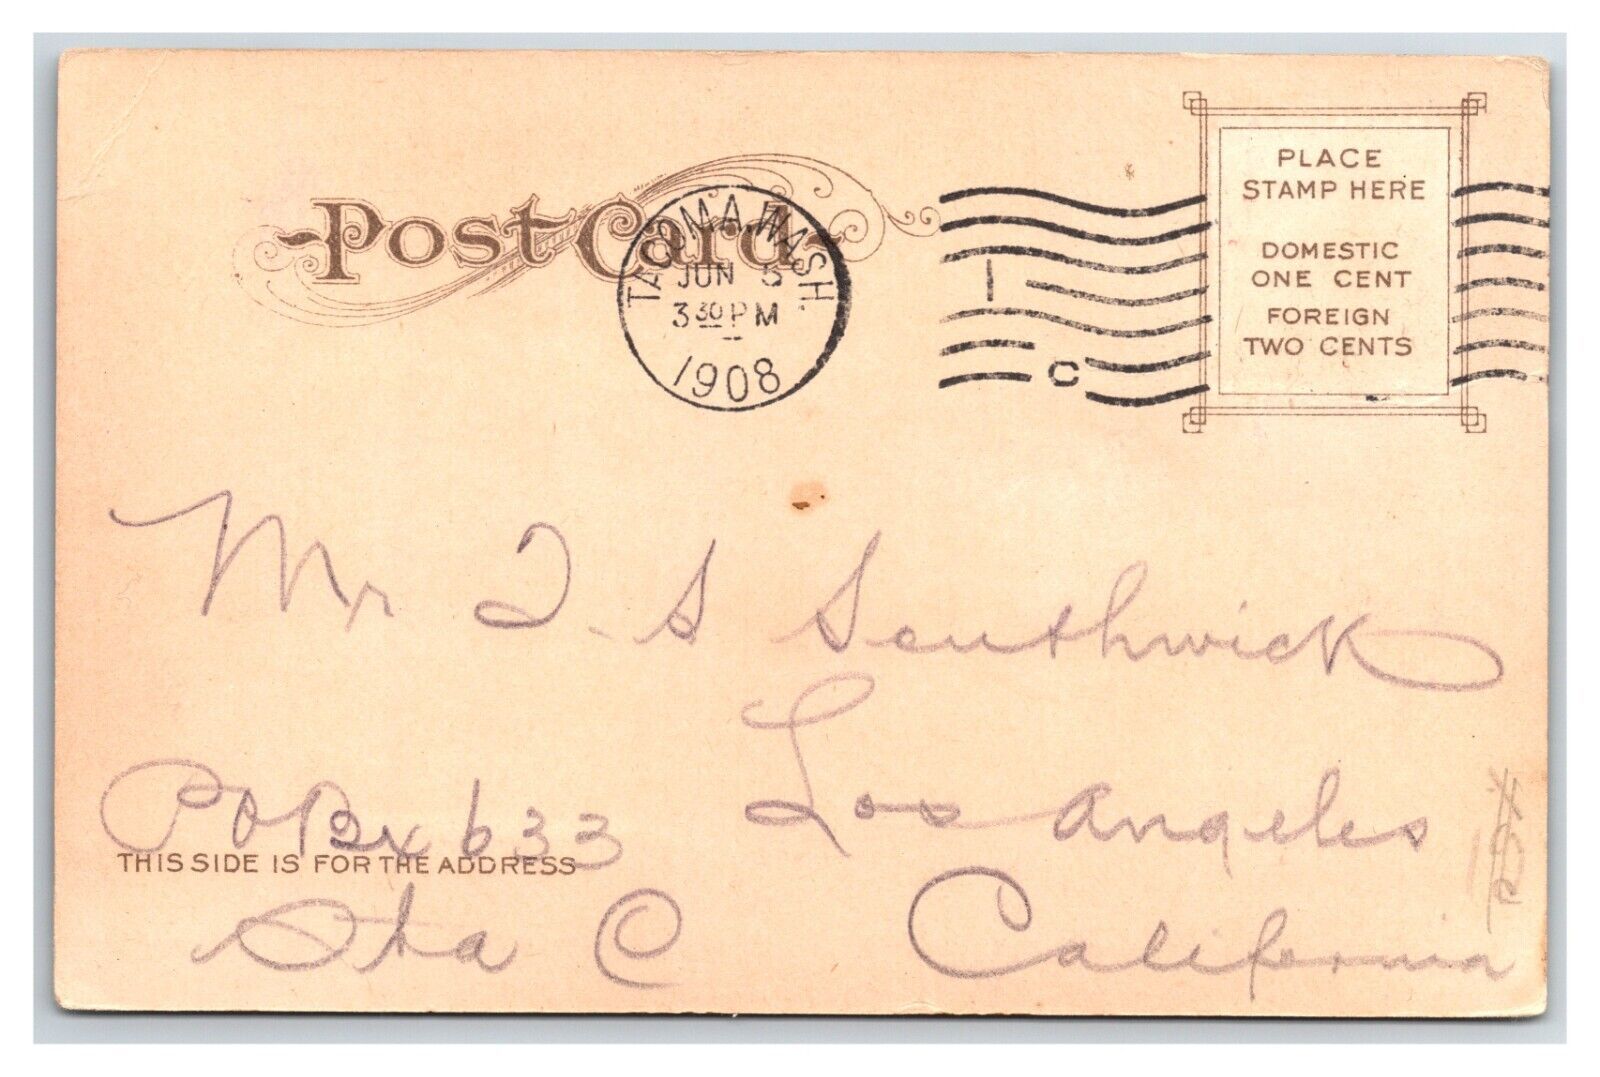 Post Card
TACOMA, WASH.
JUN 5
3 30 PM
1908
1
C
PLACE
STAMP HERE
DOMESTIC
ONE CENT
FOREIGN
TWO CENTS
Mr J. S Southwick
Los Angeles
PO Box 633
THIS SIDE IS FOR THE ADDRESS
Sta C
California